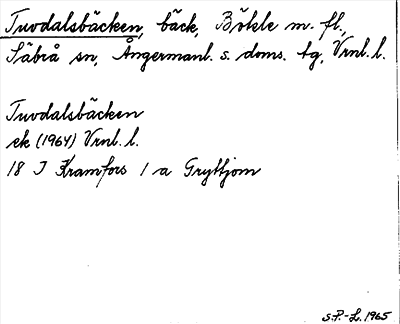 Tuvdalsbäcken, bäck, Bökle m. fl.,
Säbrå sn, Ångermanl. s. doms. tg, Vrnl. l.
Tuvdalsbäcken
ek (1964) Vrnl. l.
18 I Kramfors 1 a Gryttjom
S.P.-L. 1965